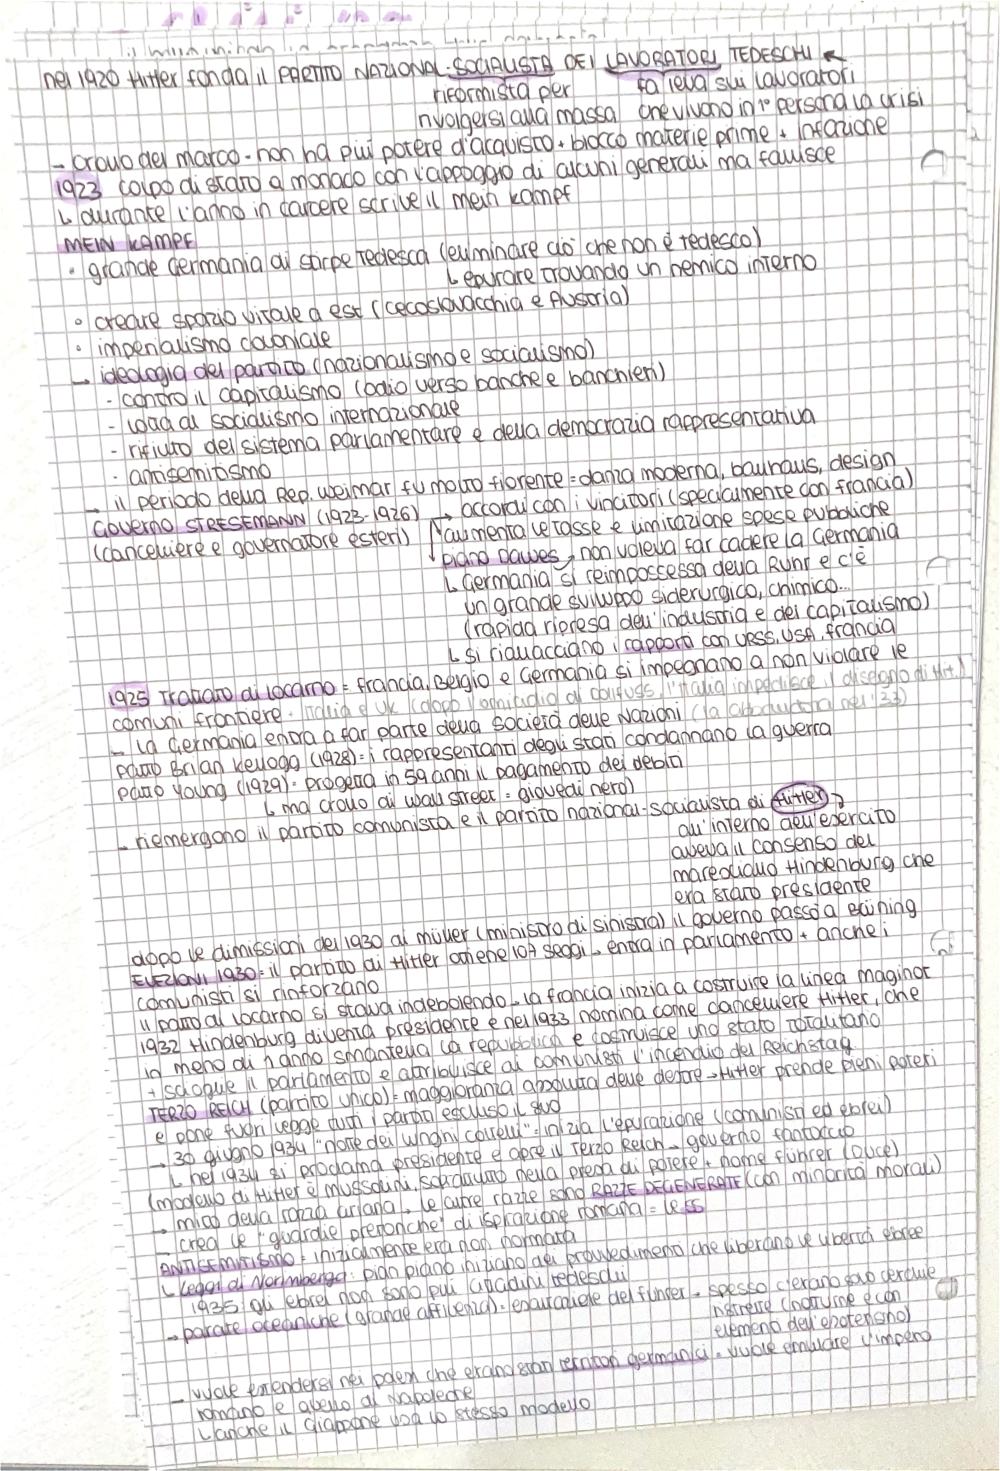 nel 1920 Hitler fonda il PARTITO NAZIONAL-SOCIALISTA DEI LAVORATORI TEDESCHI
riformista per fa leva sui lavoratori
rivolgersi alla massa che vivono in 1° persona la crisi
- crollo del marco - non ha più potere d'acquisto + blocco materie prime + inflazione
1923 colpo di stato a monaco con l'appoggio di alcuni generali ma fallisce
↳ durante l'anno in carcere scrive il mein kampf
MEIN KAMPF
• grande Germania di stirpe tedesca (eliminare ciò che non è tedesco)
↳ epurare trovando un nemico interno
• creare spazio vitale a est (cecoslovacchia e Austria)
• imperialismo coloniale
→ ideologia del partito (nazionalismo e socialismo)
- contro il capitalismo (odio verso banche e banchieri)
- lotta al socialismo internazionale
- rifiuto del sistema parlamentare e della democrazia rappresentativa
- antisemitismo
→ il periodo della Rep. Weimar fu molto fiorente = danza moderna, bauhaus, design
GOVERNO STRESEMANN (1923-1926) → accordi con i vincitori (specialmente con francia)
(cancelliere e governatore esteri) aumenta le tasse e limitazione spese pubbliche
piano Dawes, non voleva far cadere la Germania
↳ Germania si reimpossessa della Ruhr e c'è
un grande sviluppo siderurgico, chimico...
(rapida ripresa dell'industria e del capitalismo)
↳ si riallacciano i rapporti con URSS, USA, francia
1925 Trattato di Locarno = francia, Belgio e Germania si impegnano a non violare le
comuni frontiere. Italia e UK (dopo l'omicidio di Dolfuss, l'Italia impedisce il disegno di Hit.)
- la Germania entra a far parte della Società delle Nazioni (la abbandona nel '33)
patto Brian Kellogg (1928) = i rappresentanti degli stati condannano la guerra
patto Young (1929) = progetta in 59 anni il pagamento dei debiti
↳ ma crollo di wall street = giovedì nero)
- riemergono il partito comunista e il partito nazional-socialista di Hitler
all'interno dell'esercito
aveva il consenso del
maresciallo Hindenburg che
era stato presidente
dopo le dimissioni del 1930 di müller (ministro di sinistra) il governo passò a Brüning
ELEZIONI 1930 = il partito di Hitler ottiene 107 seggi → entra in parlamento + anche i
comunisti si rinforzano
il patto di Locarno si stava indebolendo → la francia inizia a costruire la linea maginot
1932 Hindenburg diventa presidente e nel 1933 nomina come cancelliere Hitler, che
in meno di 1 anno smantella la repubblica e costruisce uno stato totalitario
+ scioglie il parlamento e attribuisce ai comunisti l'incendio del Reichstag
TERZO REICH (partito unico) = maggioranza assoluta delle destre → Hitler prende pieni poteri
e pone fuori legge tutti i partiti escluso il suo
→ 30 giugno 1934 "notte dei lunghi coltelli" = inizia l'epurazione (comunisti ed ebrei)
↳ nel 1934 si proclama presidente e apre il Terzo Reich → governo fantoccio
(modello di Hitler è Mussolini, soprattutto nella presa di potere + nome führer (duce)
→ mito della razza ariana, le altre razze sono RAZZE DEGENERATE (con minorità morali)
→ crea le "guardie pretoriane" di ispirazione romana = le SS
ANTISEMITISMO = inizialmente era non normata
↳ Leggi di Norimberga: pian piano iniziano dei provvedimenti che liberano le libertà ebree
1935: gli ebrei non sono più cittadini tedeschi
→ parate oceaniche (grande affluenza) = del führer - spesso c'erano
(notturne e con
elementi dell'esoterismo)
→ vuole estendersi nei paesi che erano stati territori germanici = vuole emulare l'impero
romano e quello di Napoleone
↳ anche il Giappone usa lo stesso modello